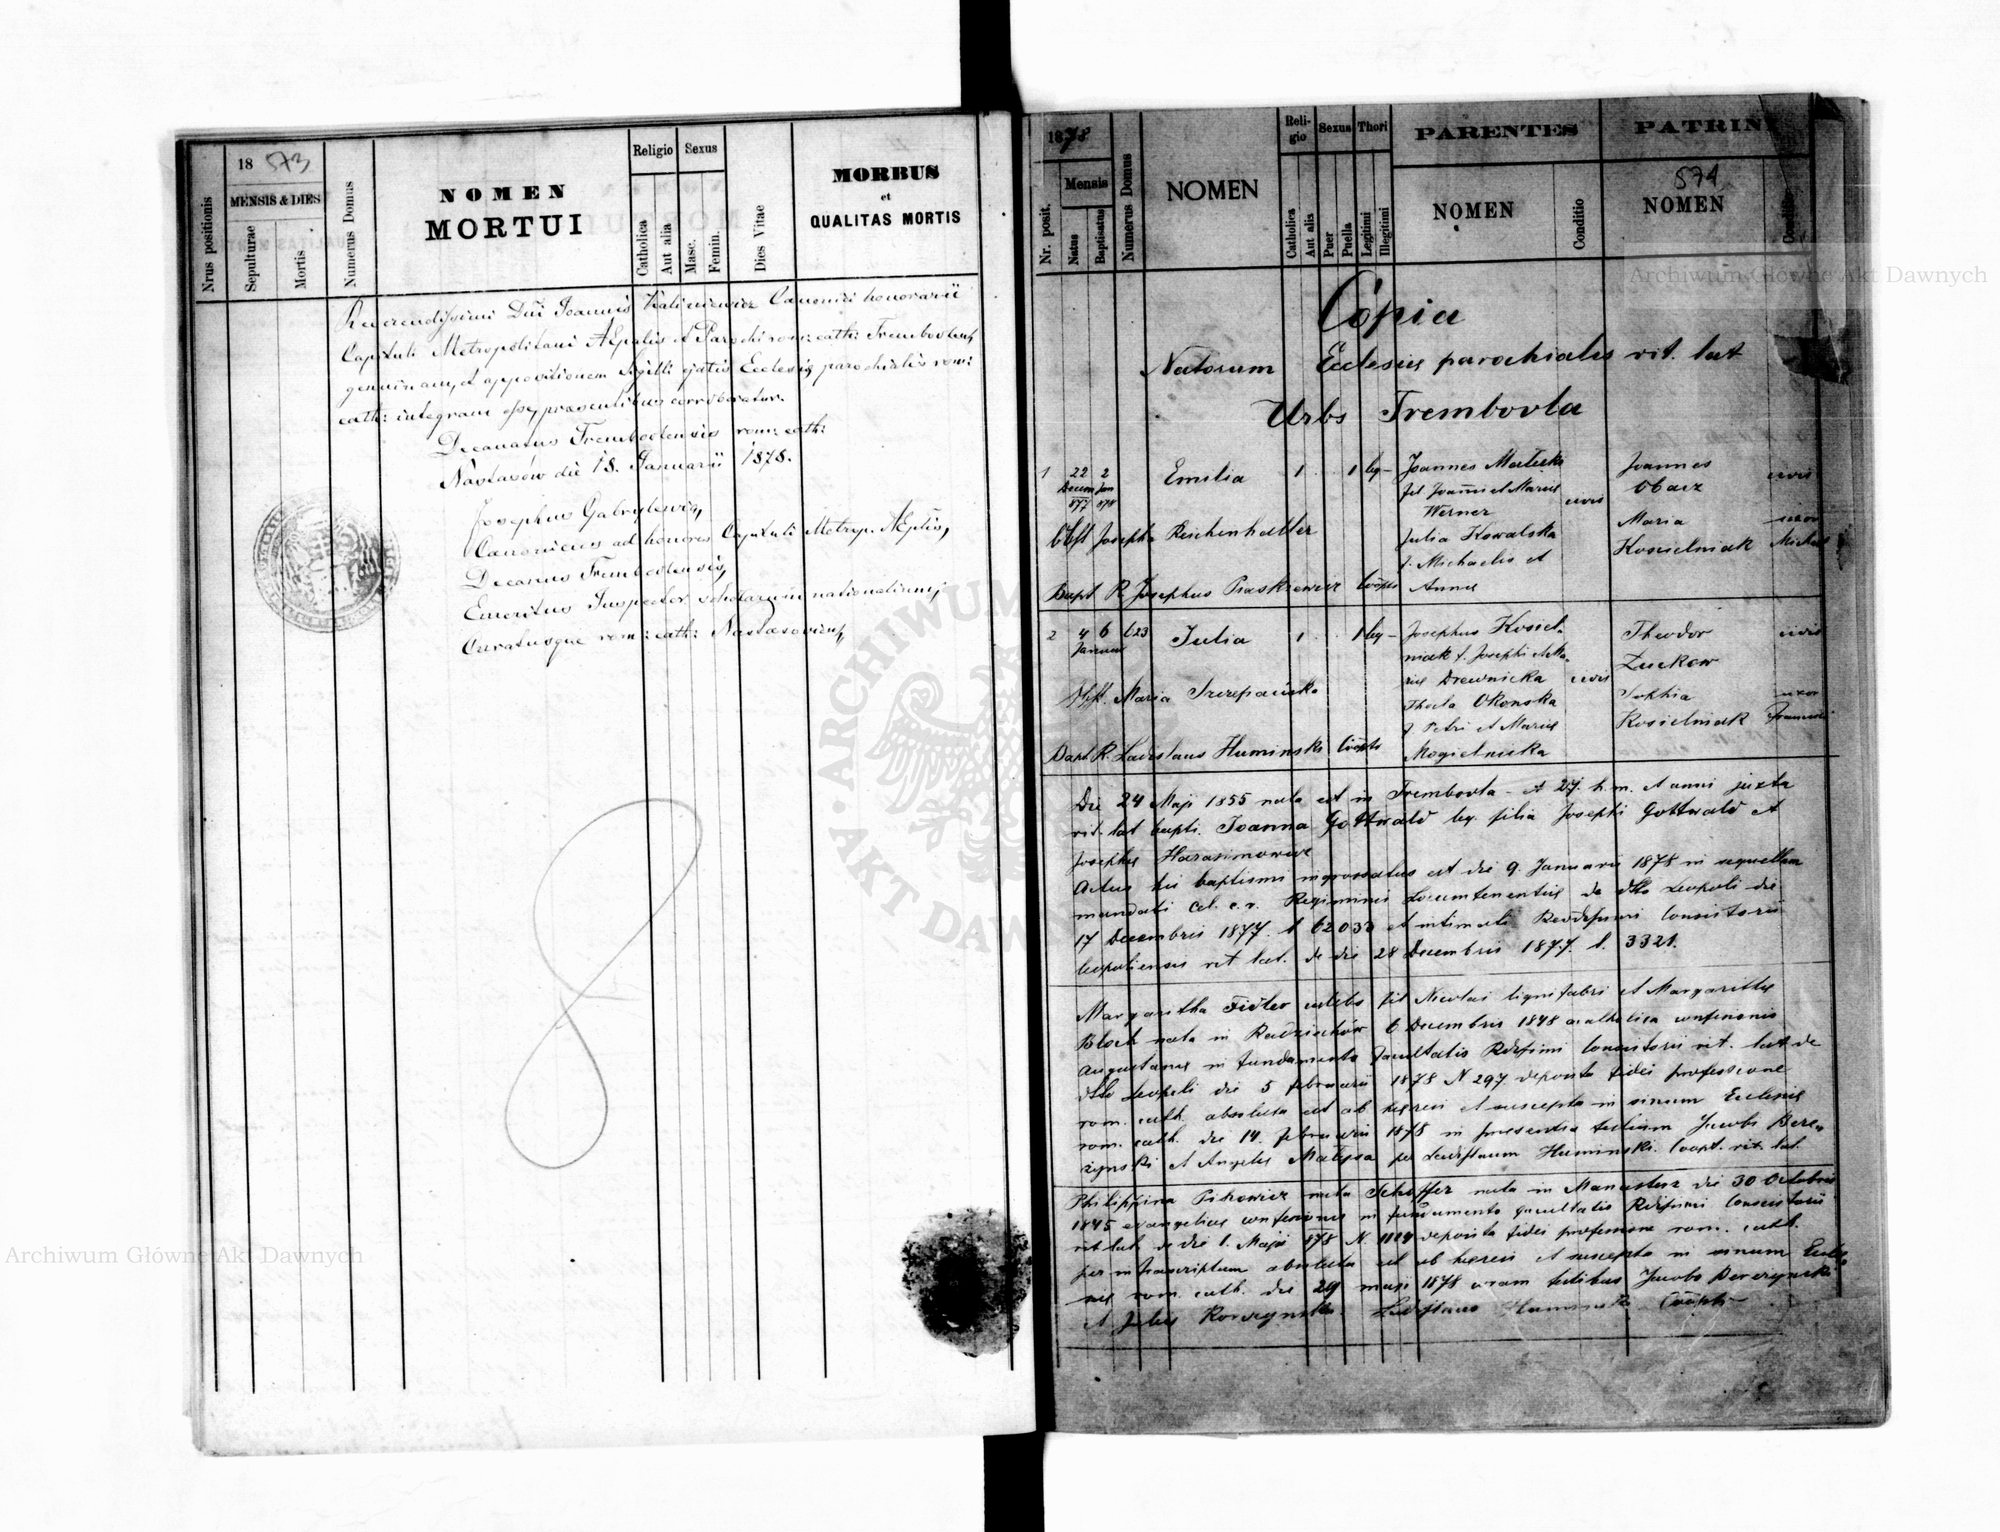 Nrus positionis
18 573
MENSIS & DIES
Sepulturae
Mortis
Numerus Domus
NOMEN
MORTUI
Religio
Catholica
Aut alia
Sexus
Masc.
Femin.
Dies Vitae
MORBUS
et
QUALITAS MORTIS
Reverendissimi Dni Joannis Kaliniewicz Canonici honorarii
Capituli Metropolitani et Parochi rom: cath: Trembowl
genuinam, et appositionem Sigilli Ecclesiæ parochialis rom:
cath: integram esse, præsentibus corroboratur.
Decanatus Trembovlensis rom: cath:
Nastasów die 18. Januarii 1878.
Josephus Gabrylewicz,
Canonicus ad honores Capituli Metrop.
Decanus Trembovlensis,
Emeritus Inspector scholarum nationalium,
Curatusque rom: cath:
1878
Nr. posit.
Mensis
Natus
Baptisatus
Numerus Domus
NOMEN
Religio
Catholica
Aut alis
Sexus
Puer
Puella
Thori
Legitimi
Illegitimi
PARENTES
NOMEN
Conditio
PATRINI
574
NOMEN
Conditio
Copia
Natorum Ecclesiæ parochialis rit. lat
Urbs Trembovla
1 22 2 Emilia 1 1 leg – Joannes Joannes civis
Decem Jan fil. Joannis et Mariæ Obacz
877 878 Werner civis Maria uxor
Obst Josepha Reichenhalter Julia Kowalska Kosielniak Michael
f. Michaelis et
Bapt R. Josephus Piaskiewicz Coopts Annæ
2 4 6 623 Julia 1 1 leg – Josephus Kosiel- Theodor civis
Januar niak f. Josephi et Ma- Zuckow
riæ Drewnicka civis Sophia uxor
Obst. Maria Szczepańska Thecla Okonska Kosielniak
f. Petri et Mariæ
Bapt R. Ladislaus Huminski Coopts Mogielnicka
Die 24 Maji 1855 nata est in Trembovla et 27 h.m. et anni juxta
rit. lat bapti. Joanna Gottwald leg. filia Josephi Gottwald et
Josephæ Harasimowicz
Actus hic baptismi ingrossatus est die 9. Januarii 1878 in sequellam
mandati Cel. c.r. Regiminis Locumtenentiæ de dtto Leopoli die
17 Decembris 1877 l. 62033 et intimati Consistorii
leopoliensis rit lat. de die 28 Decembris 1877. l. 3321.
Margaritha Fidler cælebs fil Nicolai lignifabri et Margarithæ
Bloch nata in Radziechów 6 Decembris 1848 confessionis
augustanæ in fundamento facultatis Rdssimi Consistorii rit. lat de
dtto Leopoli die 5 februarii 1878 N 297 deposita fidei professione
rom. cath. absoluta est ab hæresi et suscepta in sinum Ecclesiæ
rom. cath. die 14. februarii 1878 in præsentia testium Jacobi Bere-
zynski et Angelæ per Ladislaum Huminski. Coopt. rit. lat.
Philippina nata Scheffer nata in die 30 Octobris
1845 evangelicæ confessionis in fundamento facultatis Rdssimi Consistorii
rit lat. de die 1. Maji 878 N. deposita fidei professione rom. cath.
per infrascriptum absoluta est ab hæresi et suscepta in sinum Eccle-
siæ rom. cath. die 29 maji 1878 coram testibus Jacobo Berezynski
et Julia Ladislaus Huminski Coopts
Archiwum Główne Akt Dawnych
Archiwum Główne Akt Dawnych
ARCHIWUM
AKT DAWNYCH